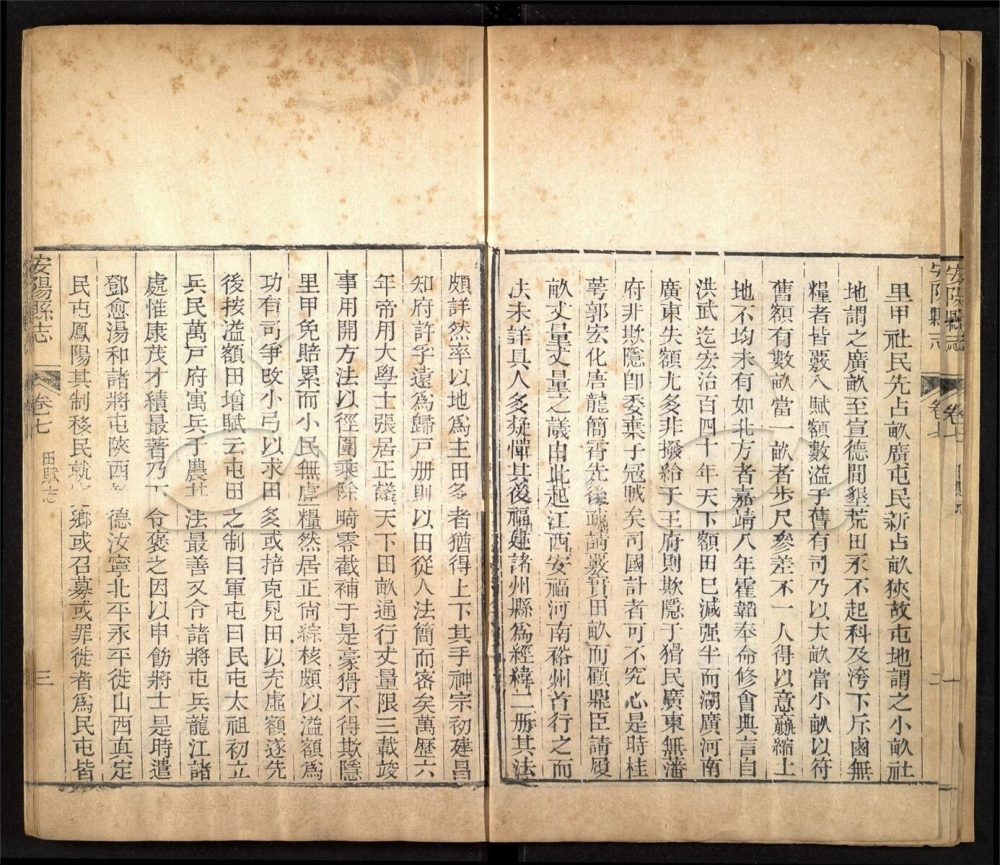 里甲社民先占畝廣屯民新占畝狹故屯地謂之小畝社
地謂之廣畝至宣德間墾荒田永不起科及洿下斥鹵無
糧者皆覈入賦額數溢于舊有司乃以大畝當小畝以符
舊額有數畝當一畝者步尺參差不一人得以意贏縮上
地不均未有如北方者嘉靖八年霍韜奉命修會典言自
洪武迄宏治百四十年天下額田巳減强半而湖廣河南
廣東失額尤多非撥給于王府則欺隱于猾民廣東無藩
府非欺隱即委棄于冦賊矣司國計者可不究心是時桂
萼郭宏化唐龍簡霄先後疏請覈實田畝而顧鼎臣請履
畝丈量丈量之議由此起江西安福河南裕州首行之而
法未詳具人多疑憚其後福建諸州縣爲經緯二册其法
安陽縣志
卷七
二
頗詳然率以地爲主田多者猶得上下其手神宗初建昌
知府許孚遠爲歸戸册則以田從人法簡而密矣萬歷六
年帝用大學士張居正議天下田畝通行丈量限三載竣
事用開方法以徑圍乘除畸零截補于是豪猾不得欺隱
里甲免賠累而小民無虛糧然居正尙綜核頗以溢額爲
功有司爭改小弓以求田多或掊克見田以充虛額遂先
後按溢額田增賦云屯田之制曰軍屯曰民屯太祖初立
兵民萬戸府寓兵于農其法最善又令諸將屯兵龍江諸
處惟康茂才積最著乃下令褒之因以申飭將士是時遣
鄧愈湯和諸將屯陝西 德汝寧北平永平徙山西眞定
民屯鳳陽其制移民就 鄉或召募或罪徙者爲民屯皆
安陽縣志
卷七
田賦志
三